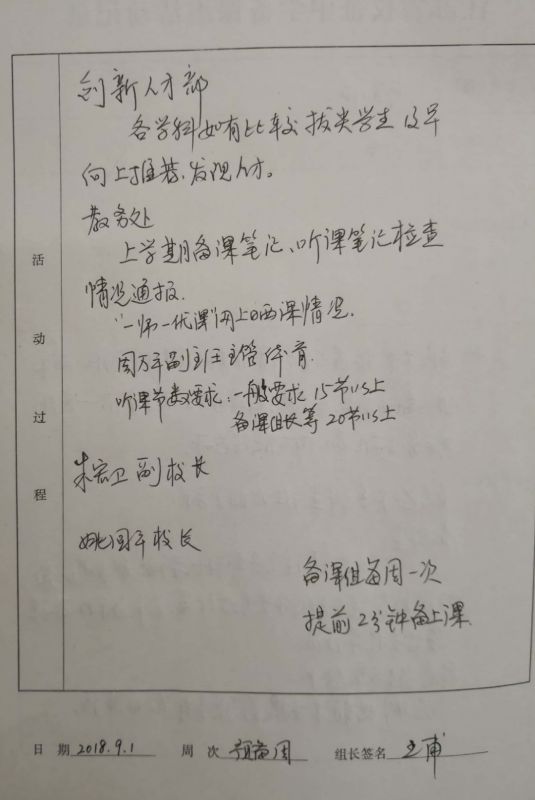 创新人才部
各学科如有比较拔尖学生及早
向上推荐,发现人才。
教务处
上学期备课笔记、听课笔记检查
情况通报.
"一师一优课"网上晒课情况.
周万年副主任主管体育.
听课节数要求:一般要求 15节以上
备课组长等 20节以上
朱宏卫副校长
姚国平校长
备课组每周一次
提前 2分钟备上课.
活动过程
日 期 2018.9.1 周 次 预备周 组长签名 王甫